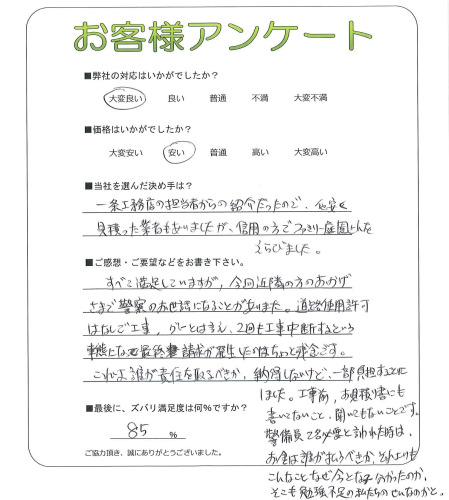 お客様アンケート
■弊社の対応はいかがでしたか?
大変良い 良い 普通 不満 大変不満
■価格はいかがでしたか?
大変安い 安い 普通 高い 大変高い
■当社を選んだ決め手は?
一条工務店の担当者からの紹介だったので、
見積った業者もありましたが、信用の方で
えらびました。
■ご感想・ご要望などをお書き下さい。
すべて満足していますが、今回近隣の方のおかげ
さまで警察のお世話になることがありました。道路使用許可
はなしで工事、グレーとはいえ、2回も工事中断するという
事態になって最終 請求が発生したのはちょっと残念です。
これは誰が責任を取るべきか、納得しないけど、一部負担することに
しました。工事前、お見積り書にも
書いてないこと、聞いてもないことです。
警備員2名必要と言われた時は、
お金は誰が払うべきか、それよりも
こんなことなぜ今となって分かったのか、
そこも勉強不足の私たちのせいなのかと。
■最後に、ズバリ満足度は何%ですか?
85 %
ご協力頂き、誠にありがとうございました。